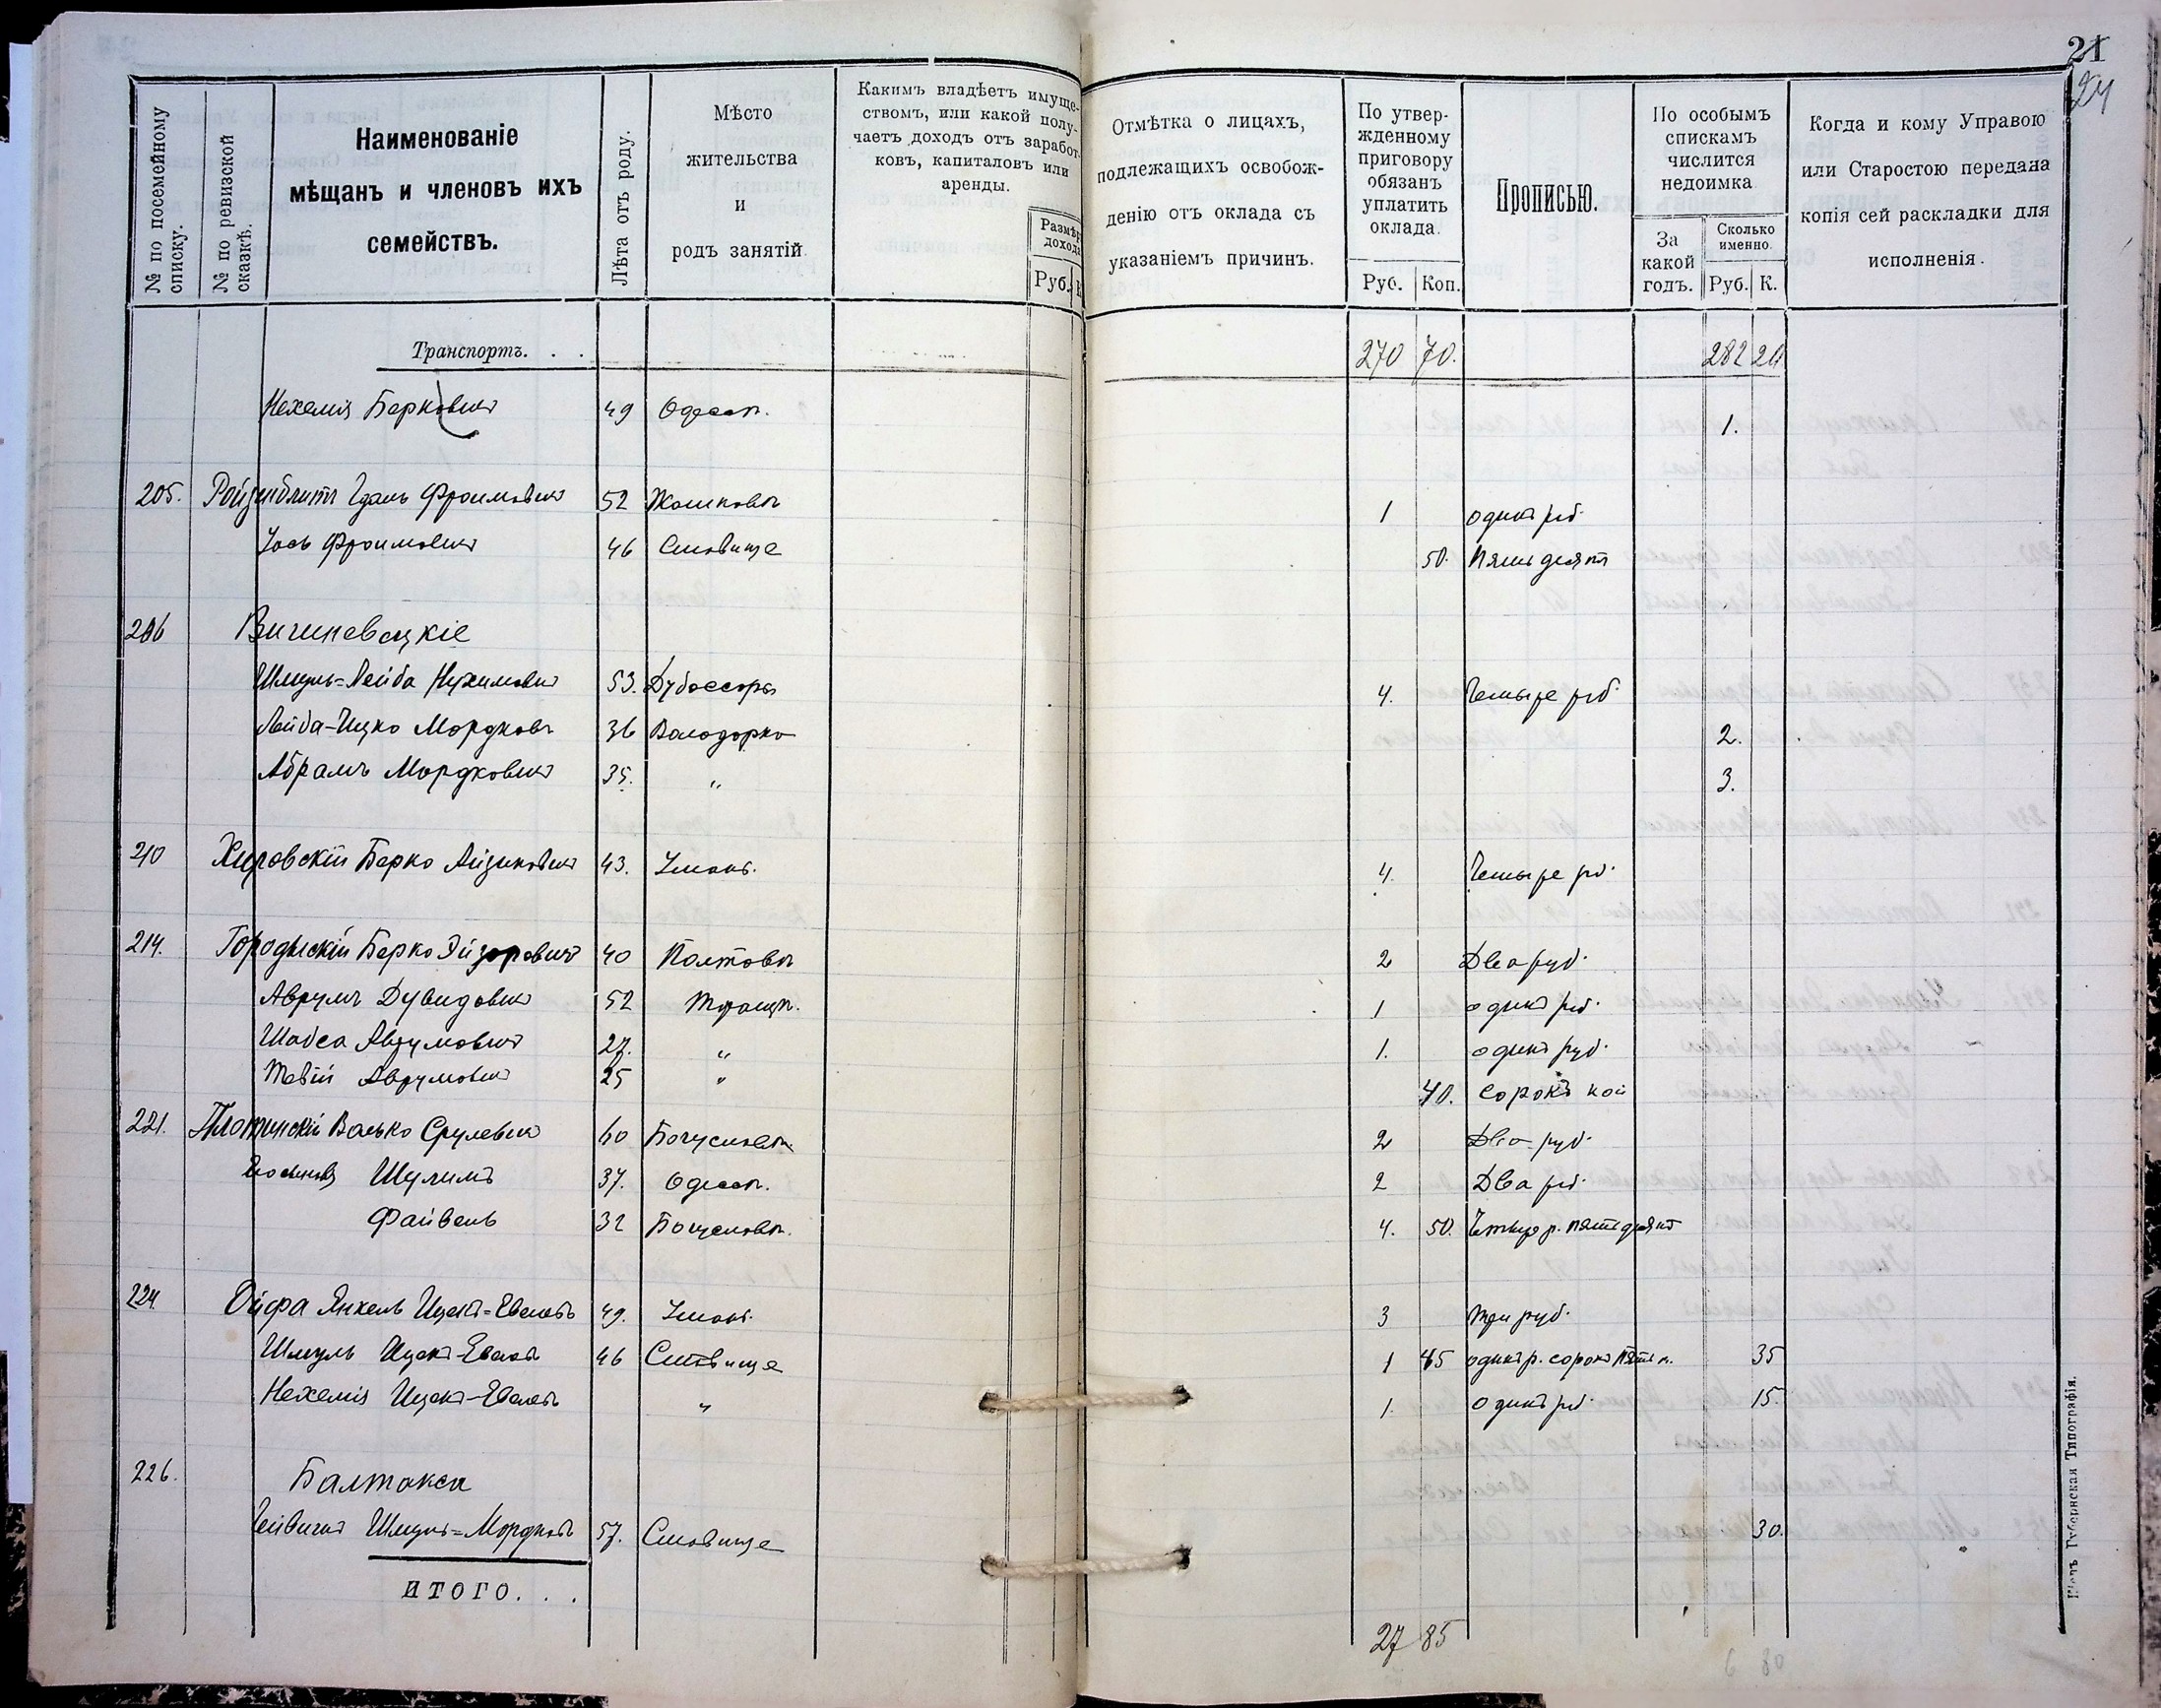 21
24
№ по посемейному списку.
№ по ревизской сказкѣ.
Наименованіе
мѣщанъ и членовъ ихъ
семействъ.
Лѣта отъ роду.
Мѣсто
жительства
и
родъ занятій
Какимъ владѣетъ имуще-
ствомъ, или какой полу-
чаетъ доходъ отъ заработ-
ковъ, капиталовъ или
аренды.
Размѣръ
дохода
Руб. К
Отмѣтка о лицахъ,
подлежащихъ освобож-
денію отъ оклада съ
указаніемъ причинъ.
По утвер-
жденному
приговору
обязанъ
уплатить
оклада.
Руб. Коп.
Прописью.
По особымъ
спискамъ
числится
недоимка
За
какой
годъ.
Сколько
именно.
Руб. К.
Когда и кому Управою
или Старостою передана
копія сей раскладки для
исполненія.
Транспортъ. . . 270 70. 282 20
Нехемія Берковичъ 49 Одесса. 1.
205. Ройзенблитъ Фроимовичъ 52 Жашковъ 1 одинъ руб.
Іось Фроимовичъ 46 Ставище 50. Пятьдесятъ
206 Вишневецкіе
Шмуль=Лейба Нухимовичъ 53. Дубоссоры 4. Четыре руб.
Лейба-Ицко Мордковъ 36 Володарка 2.
Абрамъ Мордковичъ 35. " 3.
210 Берко Айзиковичъ 43. Умань. 4. Четыре руб.
214. Городискій Берко 40 Полтава 2 Два руб.
Аврумъ Дувидовичъ 52 Тараща. 1 одинъ руб.
Шабса Аврумовичъ 27. " 1. одинъ руб.
Тевій Аврумовичъ 25 " 40. сорокъ коп
221. Волько Срулевичъ 60 Богуславъ. 2 Два руб.
Шулимъ 37. Одесса. 2 Два руб.
Файвель 32 Богуславъ. 4. 50. Четыре р. пятьдесятъ
224. Ойфа Янкель Ицекъ=Евелевъ 49. Умань. 3 три руб.
Шмуль Ицекъ-Евелевъ 46 Ставище 1 45 одинъ р. сорокъ пять к. 35
Нехемія Ицекъ-Евелевъ " 1. одинъ руб. 15.
226. Балтакса
Шмуль=Мордковъ 57. Ставище 30.
ИТОГО. . .
27 85
6 80
Губернская Типографія.